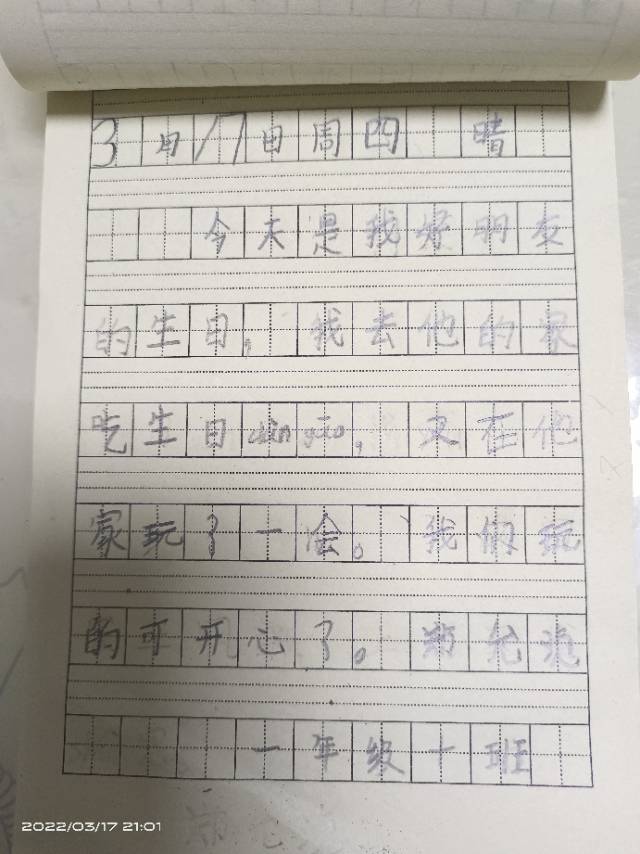 3月17日周四 晴
今天是我好朋友
的生日，我去他的家
吃生日dàn gāo，又在他
家玩了一会。我们玩
的可开心了。
一年级十班
2022/03/17 21:01